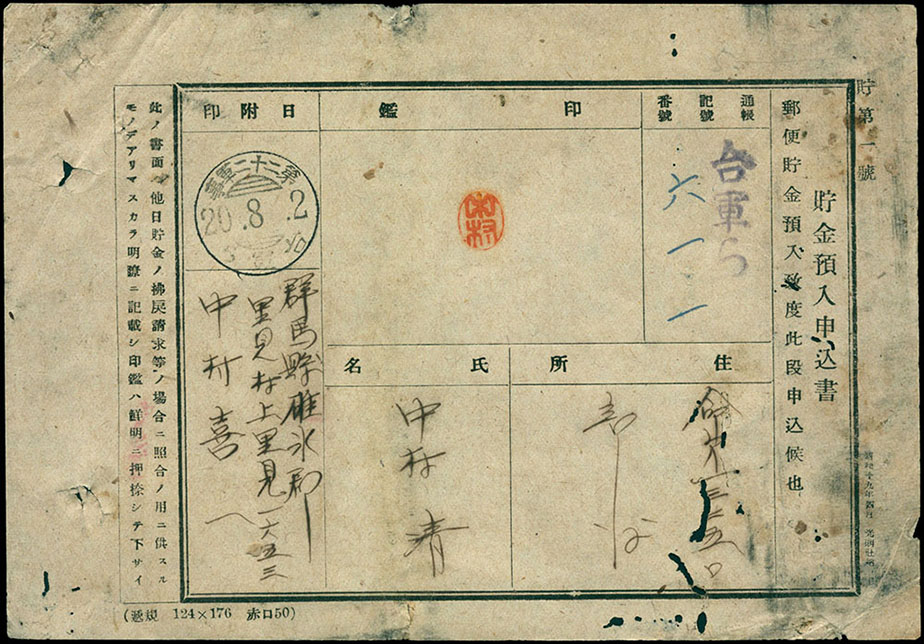 貯第一號
貯金預入申込書
郵便貯金預入致度此段申込候也
通帳
記號
番號
台軍ら
六一一
印鑑
中村
日附印
第二十二軍事
20.8.2
住所
氏名
中村 清
群馬縣碓氷郡
里見村上里見一六五三
中村喜一
此ノ書面ハ他日貯金ノ拂戻請求等ノ場合ニ照合ノ用ニ供スル
モノデアリマスカラ明瞭ニ記載シ印鑑ハ鮮明ニ押捺シテ下サイ
(遞規 124×176 赤口50)